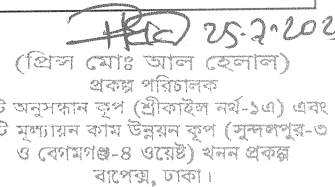 25.7.202
(প্রিন্স মোঃ আল হেলাল)
প্রকল্প পরিচালক
টি অনুসন্ধান কূপ (শ্রীকাইল নর্থ-১এ) এবং
টি মূল্যায়ন কাম উন্নয়ন কূপ (সুন্দলপুর-৩
ও বেগমগঞ্জ-৪ ওয়েষ্ট) খনন প্রকল্প
বাপেক্স, ঢাকা।